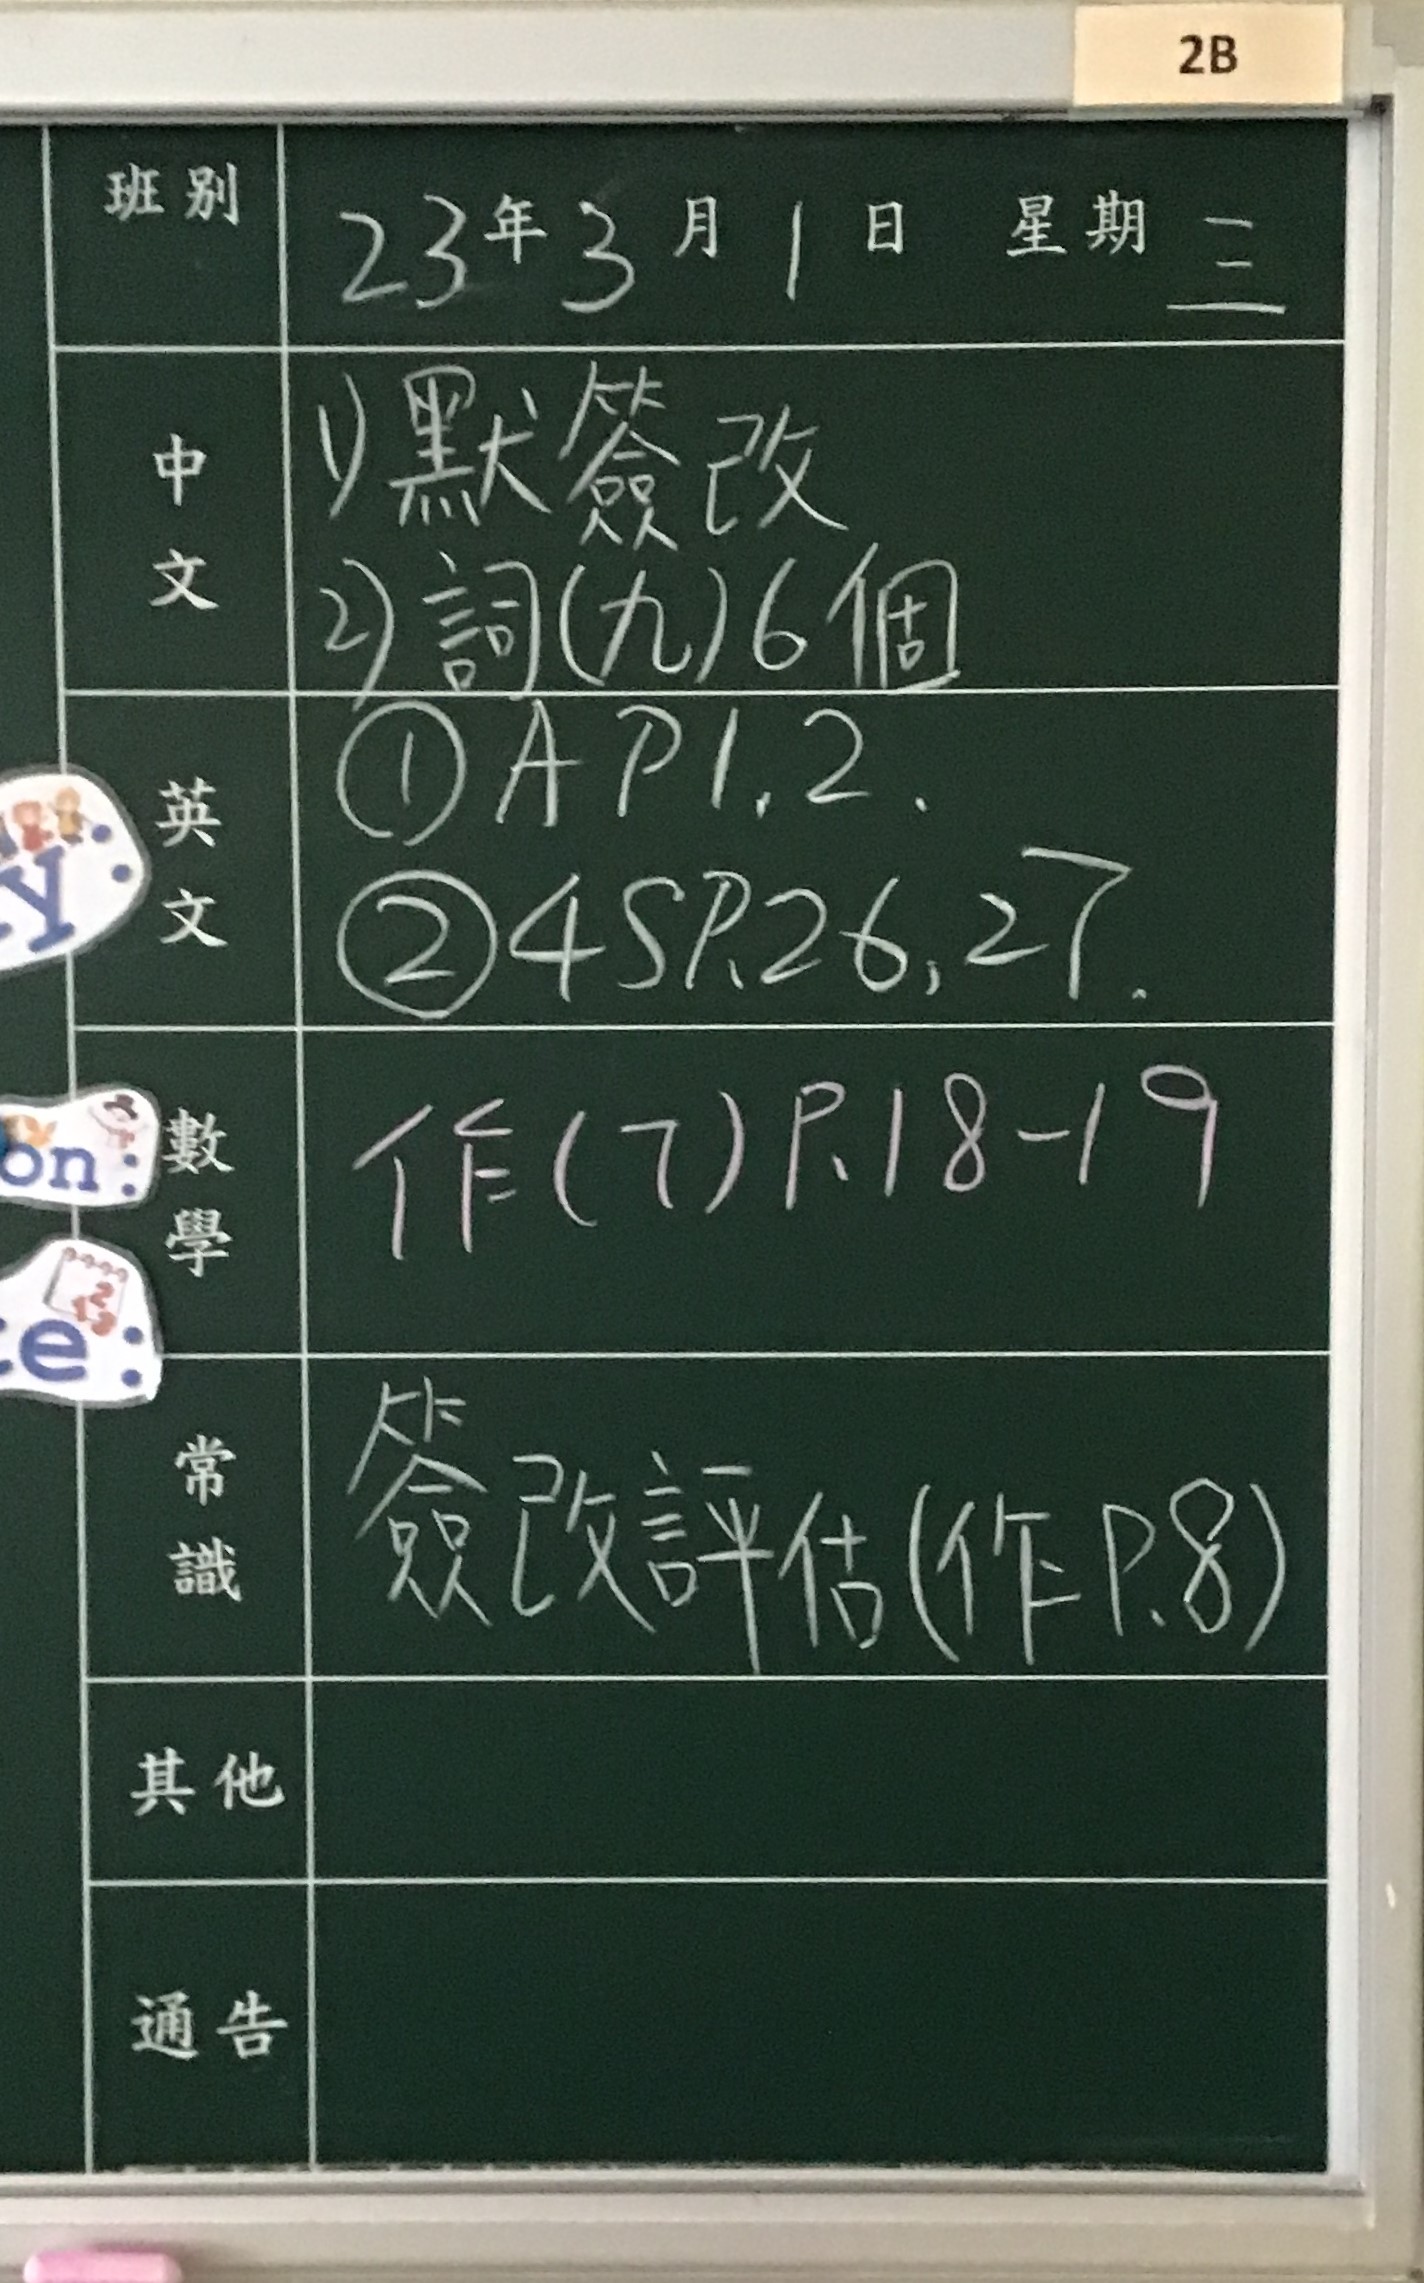 2B
班別
23年3月1日 星期三
中文
1) 默簽改
2) 詞(九)6個
英文
① A P1, 2.
② 4S P.26, 27.
y:
數學
作(7) P.18-19
on:
常識
簽改評估(作P.8)
te:
其他
通告